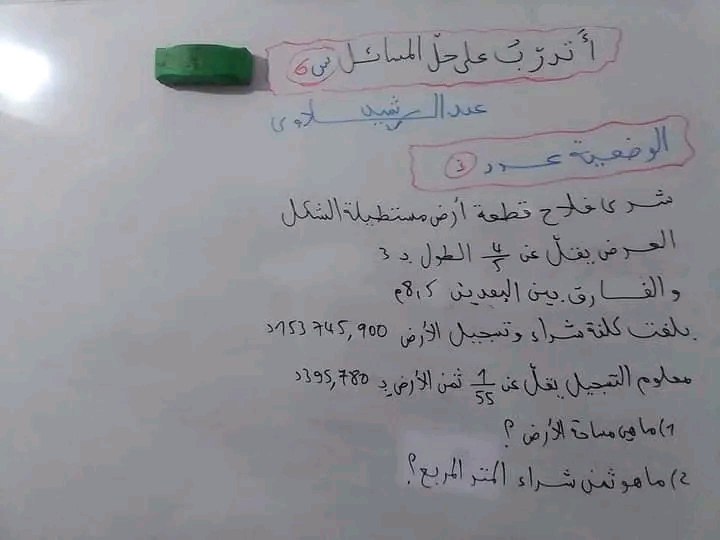 أتدرّبُ على حلّ المسائل س6
عبد الرشيد سلاوي
الوضعية عدد 3
شرى فلاح قطعة أرض مستطيلة الشكل
العرض يقلّ عن 4/5 الطول بـ 3
والفارق بين البعدين 8,5م
بلغت كلفة شراء وتسجيل الأرض 153745,900د
معلوم التسجيل يقلّ عن 1/55 ثمن الأرض بـ 395,780د
1) ماهي مساحة الأرض ؟
2) ما هو ثمن شراء المتر المربع ؟